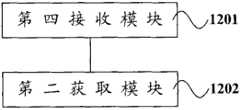 第四接收模块 1201
第二获取模块 1202